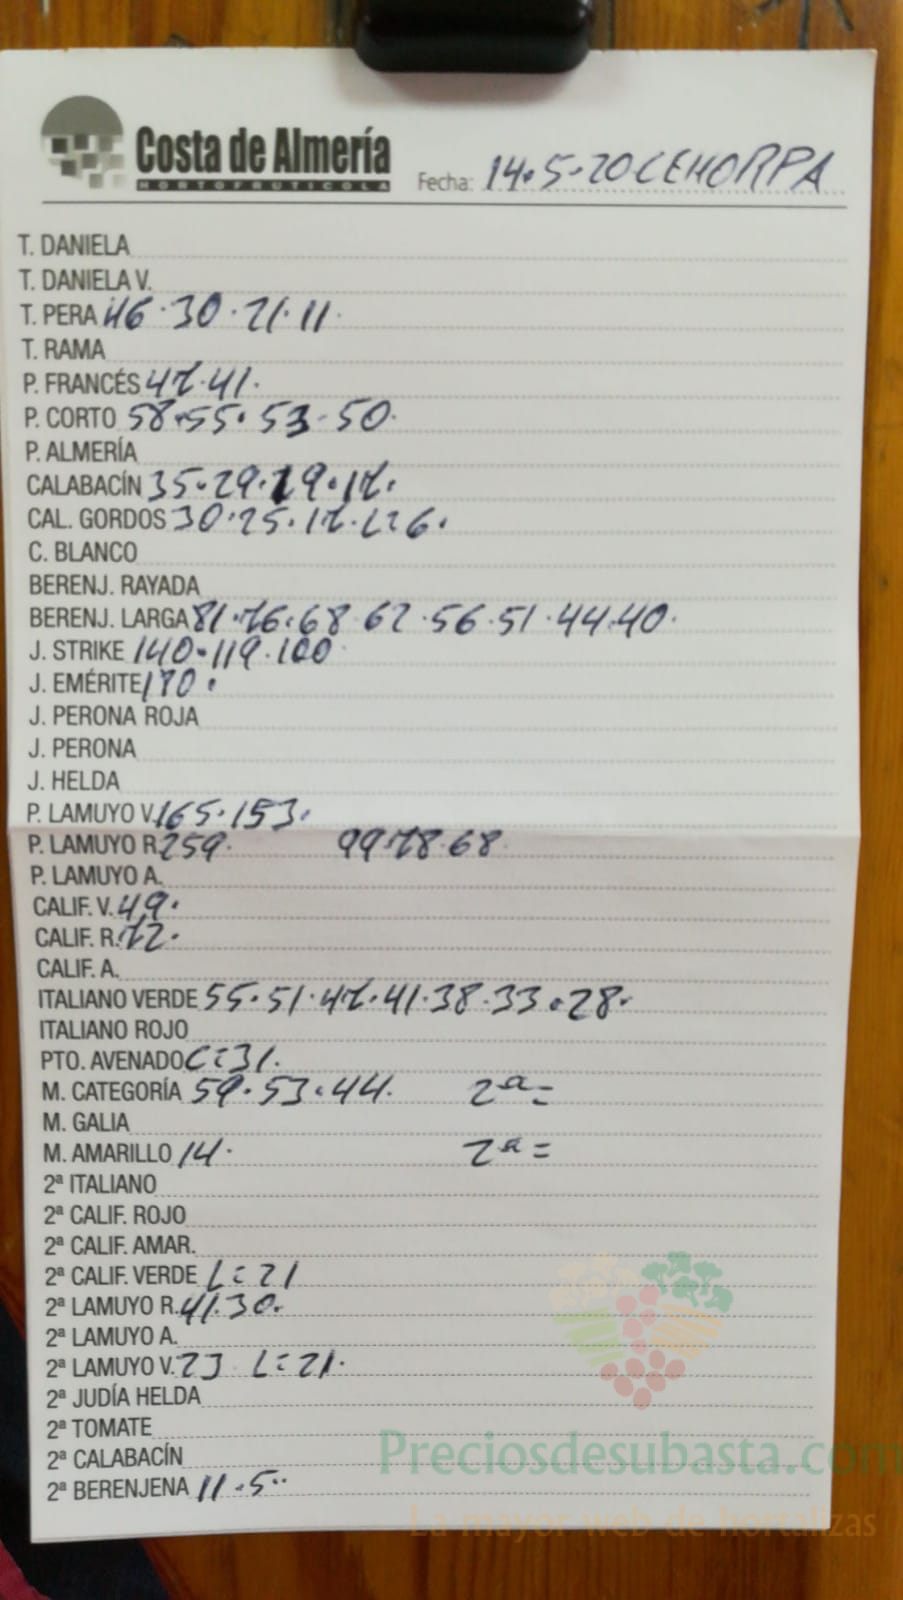 Costa de Almería
HORTOFRUTICOLA
Fecha: 14.5.20 CEHORPA
T. DANIELA
T. DANIELA V.
T. PERA 46.30.21.11.
T. RAMA
P. FRANCÉS 47.41.
P. CORTO 58.55.53.50.
P. ALMERÍA
CALABACÍN 35.29.19.17.
CAL. GORDOS 30.25.17.L=6.
C. BLANCO
BERENJ. RAYADA
BERENJ. LARGA 81.76.68.62.56.51.44.40.
J. STRIKE 140.119.100
J. EMÉRITE 170.
J. PERONA ROJA
J. PERONA
J. HELDA
P. LAMUYO V. 165.153.
P. LAMUYO R. 259. 99.78.68
P. LAMUYO A.
CALIF. V. 49.
CALIF. R. 72.
CALIF. A.
ITALIANO VERDE 55.51.47.41.38.33.28.
ITALIANO ROJO
PTO. AVENADO C=31.
M. CATEGORÍA 59.53.44. 2ª=
M. GALIA
M. AMARILLO 14. 2ª=
2ª ITALIANO
2ª CALIF. ROJO
2ª CALIF. AMAR.
2ª CALIF. VERDE L=21
2ª LAMUYO R. 41.30.
2ª LAMUYO A.
2ª LAMUYO V. 23 L=21.
2ª JUDÍA HELDA
2ª TOMATE
2ª CALABACÍN
2ª BERENJENA 11.5..
Preciosdesubasta.com
La mayor web de hortalizas